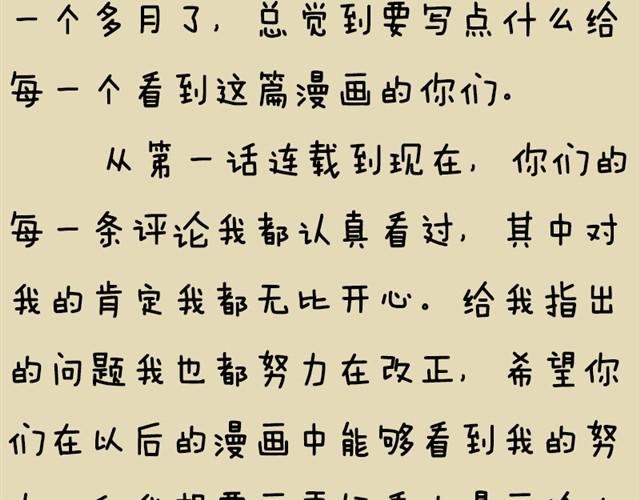 一个多月了，总觉到要写点什么给
每一个看到这篇漫画的你们。
从第一话连载到现在，你们的
每一条评论我都认真看过，其中对
我的肯定我都无比开心。给我指出
的问题我也都努力在改正，希望你
们在以后的漫画中能够看到我的努